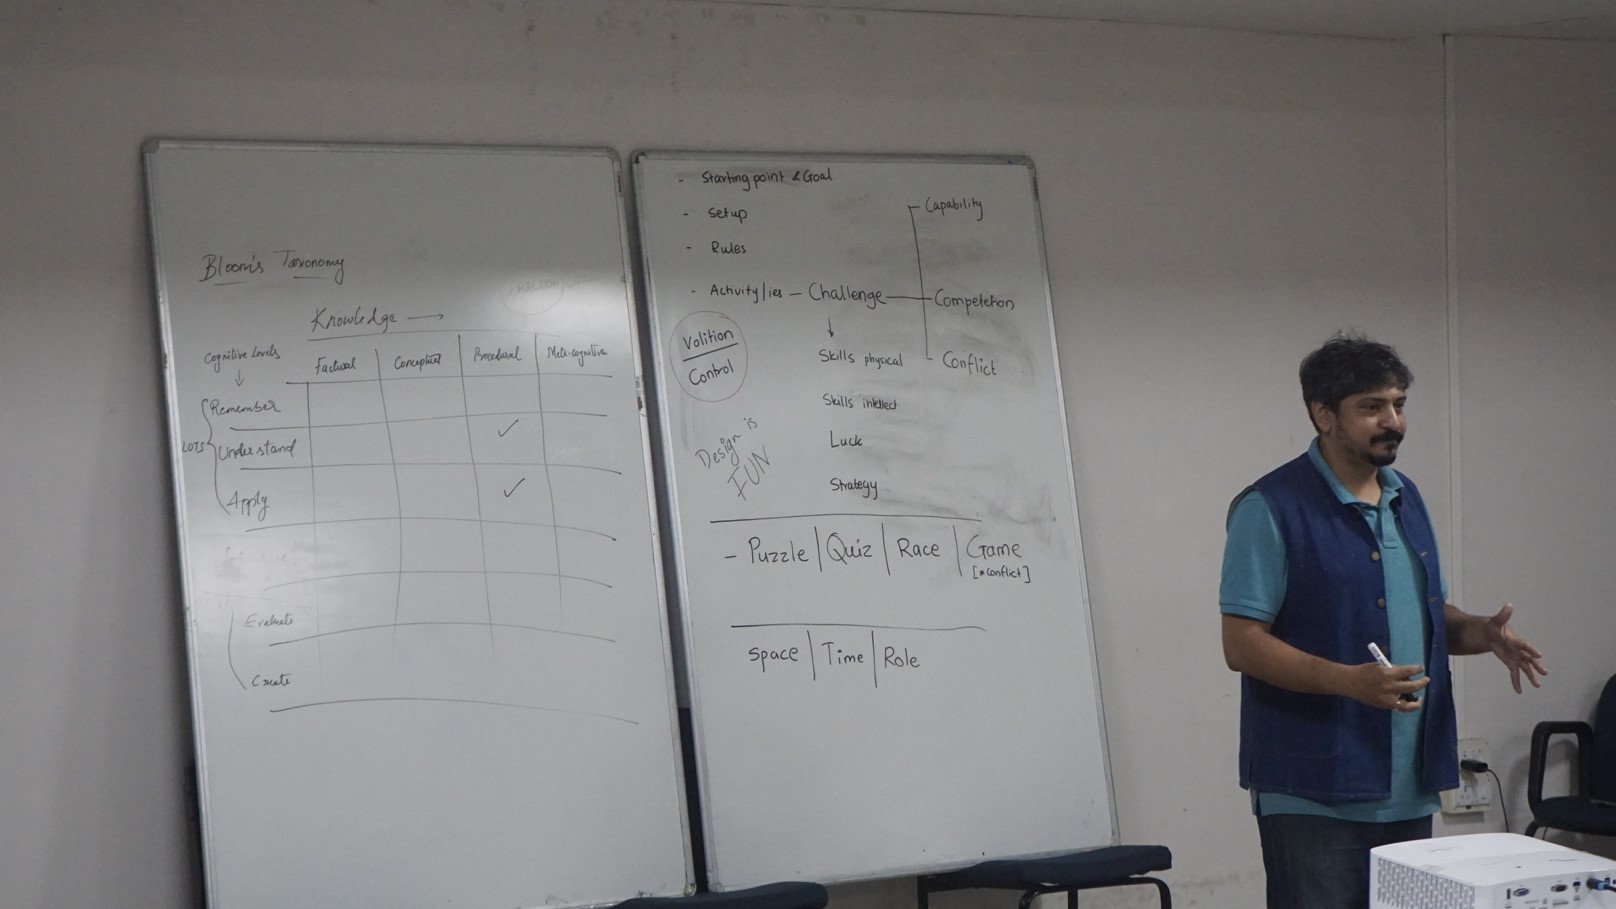 Bloom's Taxonomy
Knowledge →
Cognitive Levels ↓
Factual Conceptual Procedural Meta-cognitive
LOTS
Remember
Understand ✓
Apply ✓
Evaluate
Create
- Starting point & Goal
- Setup
- Rules
- Activity/ies – Challenge
Capability
Competetion
Conflict
Volition
Control
↓
Skills physical
Skills intellect
Luck
Strategy
Design is
FUN
- Puzzle | Quiz | Race | Game
[*conflict]
Space | Time | Role